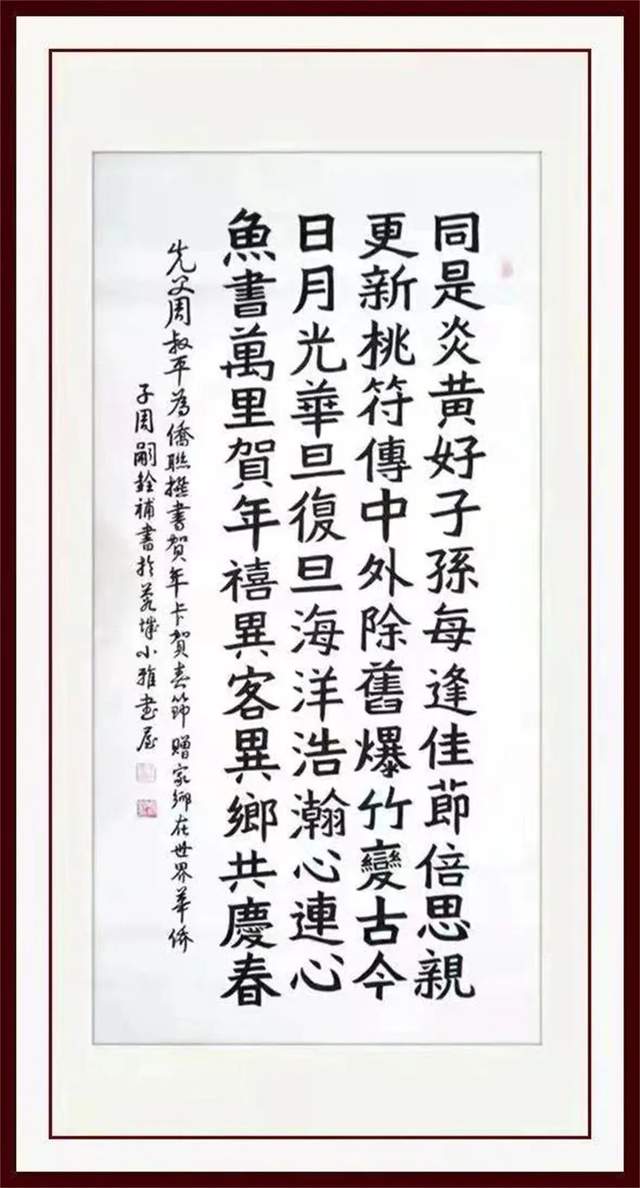 同是炎黃好子孫每逢佳節倍思親
更新桃符傳中外除舊爆竹變古今
日月光華旦復旦海洋浩瀚心連心
魚書萬里賀年禧異客異鄉共慶春
先父周叔平為僑聯撰書賀年卡賀春節贈家鄉在世界華僑
子周嗣銓補書於茗城小雅書屋